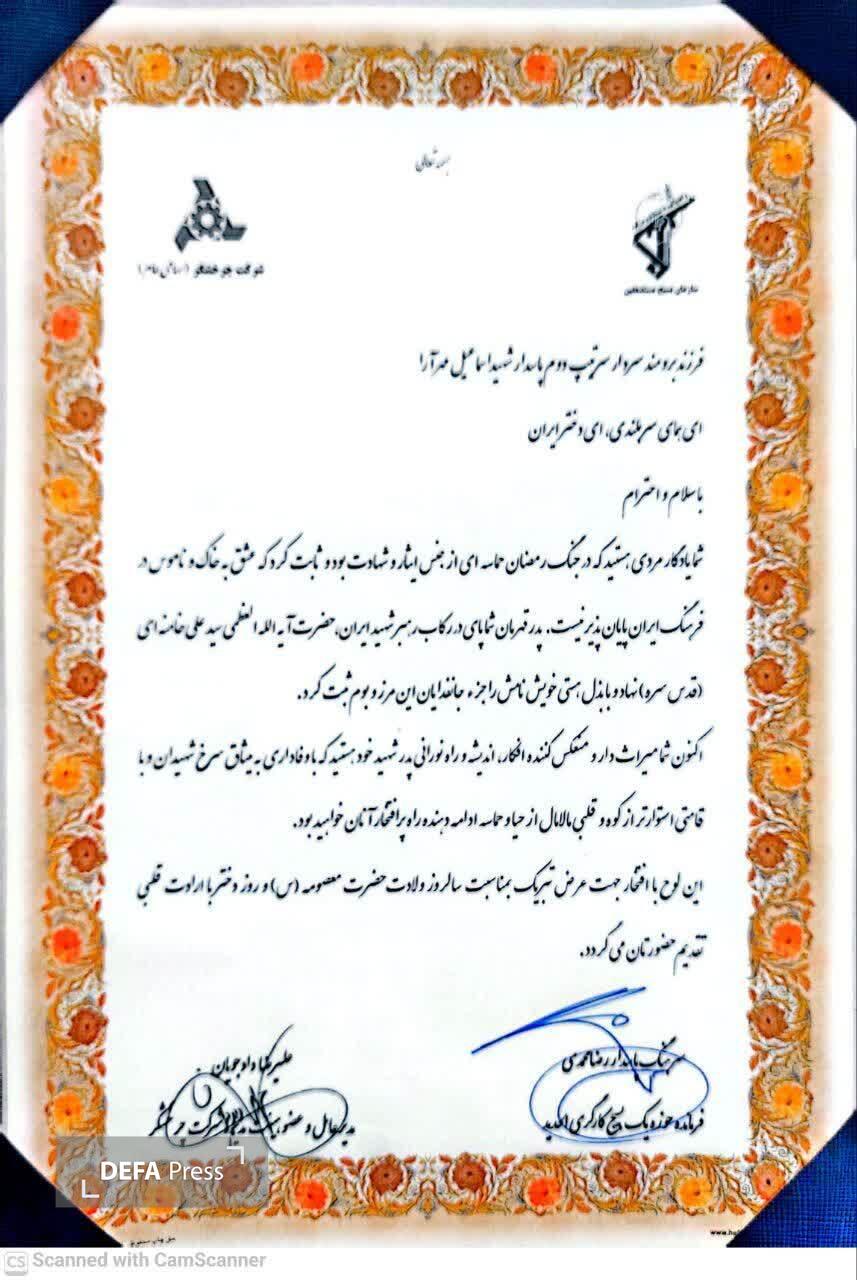 بسمه تعالی
سازمان بسیج مستضعفین
شرکت چرخشگر (سهامی عام)
فرزند برومند سردار سرتیپ دوم پاسدار شهید اسماعیل مهرآرا
ای همای سربلندی، ای دختر ایران
با سلام و احترام
شما یادگار مردی هستید که در جنگ رمضان حماسه ای از جنس ایثار و شهادت بود و ثابت کرد که عشق به خاک و ناموس در
فرهنگ ایران پایان پذیر نیست. پدر قهرمان شما پای در رکاب رهبر شهید ایران، حضرت آیه الله العظمی سید علی خامنه ای
(قدس سره) نهاد و با بذل هستی خویش نامش را جزء جانفدایان این مرز و بوم ثبت کرد.
اکنون شما میراث دار و منعکس کننده افکار، اندیشه و راه نورانی پدر شهید خود هستید که با وفاداری به میثاق سرخ شهیدان و با
قامتی استوارتر از کوه و قلبی مالامال از حیا و حماسه ادامه دهنده راه پرافتخار آنان خواهید بود.
این لوح با افتخار جهت عرض تبریک بمناسبت سالروز ولادت حضرت معصومه (س) و روز دختر با ارادت قلبی
تقدیم حضورتان می گردد.
سرهنگ پاسدار رضا محمدی
فرمانده حوزه یک بسیج کارگری
علیرضا داوجویان
مدیرعامل و عضو هیئت مدیره شرکت چرخشگر
DEFA Press
CS Scanned with CamScanner